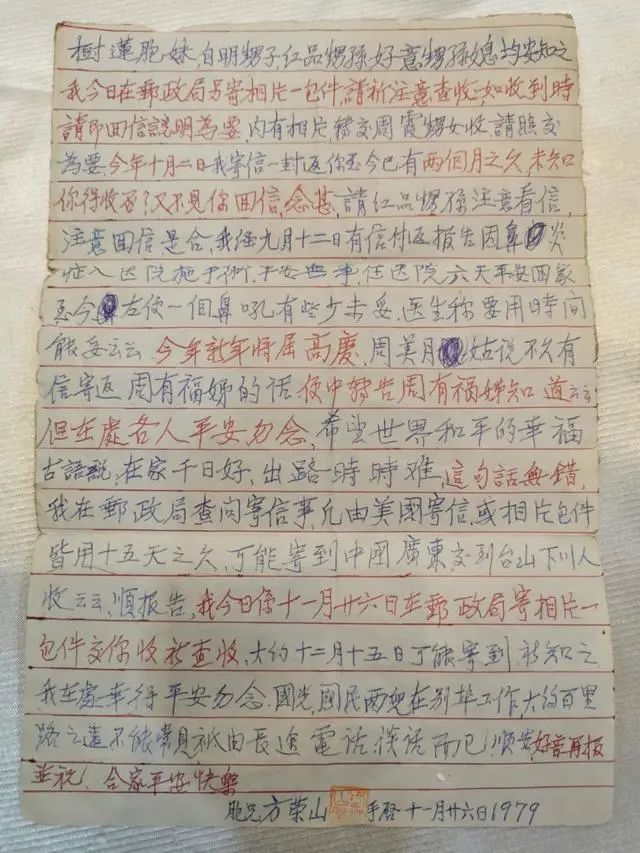 樹蓮胞妹,自明甥子,紅品甥孫,好意甥孫媳均安知之
我今日在郵政局另寄相片一包件,請祈注意查收,如收到時
請即回信說明為要,內有相片轉交周霞甥女收,請照交
為要,今年十月二日我寄信一封返你至今已有兩個月之久,未知
你得收否?又不見你回信,念甚,請紅品甥孫注意看信,
注意回信,是合,我經九月十二日有信付返報告因鼻炎
症入医院施手術,平安無事,住医院六天平安回家
至今左便一個鼻吼有些少未妥,医生称要用時間
能妥云云,今年新年將屆高慶,周美月姑说不久有
信寄返周有福娣的话,使中轉告周有福娣知道云云
但在處各人平安勿念,希望世界和平的幸福
古語說,在家千日好,出路一時時难,這句話無錯,
我在郵政局查问寄信事,凡由美國寄信,或相片包件
皆用十五天之久,可能寄到中國廣東交到台山下川人
收云云,順报告,我今日係十一月廿六日在郵政局寄相片一
包件交你收祈查收,大约十二月十五日可能寄到祈知之
我在處幸得平安勿念.國光,國民兩兒在別埠工作,大約百里
路之遠不能常見祇由長途電话談话而已,順告,好音再报
並祝,合家平安快樂
胞兄方荣山 手啓十一月廿六日1979